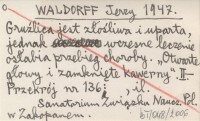 WALDORFF Jerzy 1947.
Gruźlica jest złośliwa i uparta,
jednak wczesne leczenie
osłabia przebieg choroby. „Otwarte
głowy i zamknięte kawerny" II-
Przekrój nr 136 , il.
Sanatorium Związku Naucz. Pol.
w Zakopanem.